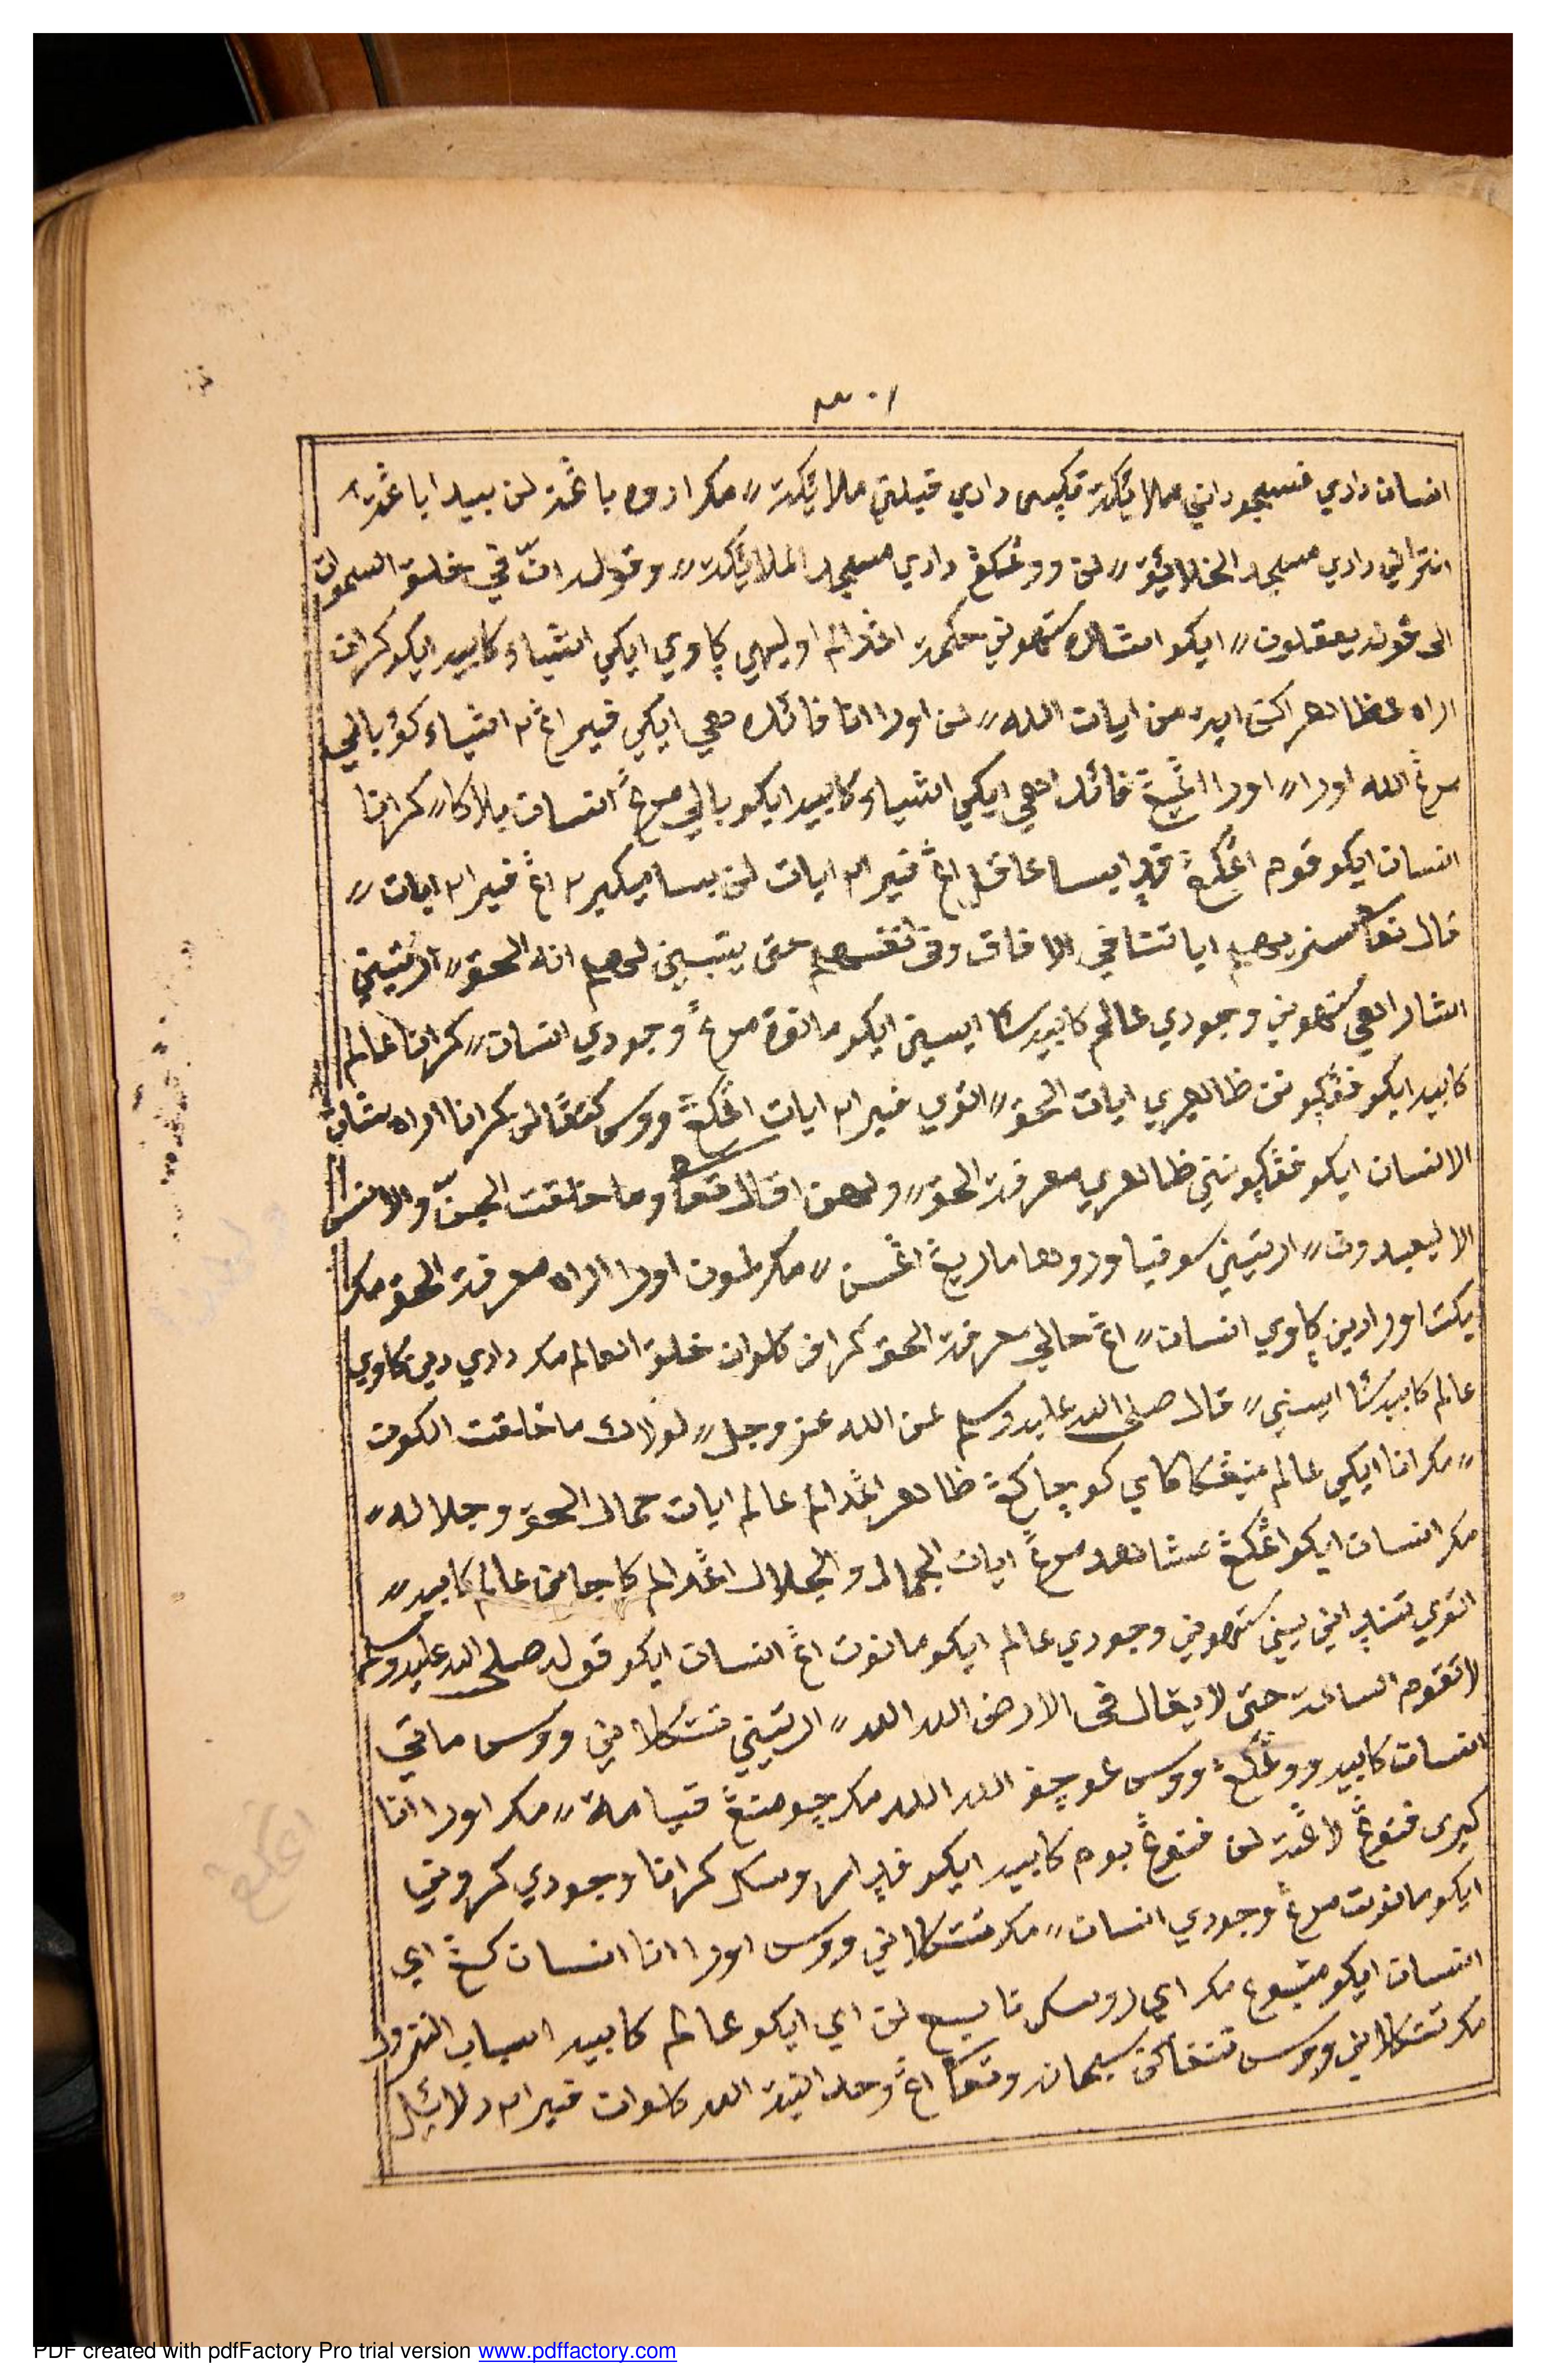 انسان دادي فسجوداني ملائكة تكپسي دادي قبلتي ملائيكة〃 مكر ادوه باڠة لن بيدا باڠة٢
انترااني دادي مسجد الخلائيق〃 لن ووڠكڠ دادي مسجد الملائيكة〃 وقوله انّ في خلق السموات
الى قوله يعقلون〃 ايكو اشاره ستهوني حكمة اڠدالم اوليهي ڮاوي ايكي اشياء كابيه ايكو كرانا
اراه مظاهراكن ايڠ من ايات الله〃 لن اورا انا فائده هي ايكي فيراڠ٢ اشياء كڠ بالي
مرڠ الله اورا〃 اورا اڠيڠ فائدهي ايكي اشياء كابيه ايكو بالي مرڠ انسان بلاكا〃 كرانا
انسان ايكو قوم اڠكڠ قد بيسا عاقل اڠ فيرا٢ ايات لن بيسا ميكير٢ اڠ فيرا٢ ايات〃
قال تعا سنريهم اياتنا في الافاق وفى انفسهم حتى يتبين لهم انه الحق〃 ارتيني
اشارهي ستهوني وجودي عالم كابيه سأ ايسيني ايكو مانوة مرڠ وجودي انسان〃 كرانا عالم
كابيه ايكو فڠڮونن ظاهري ايات الحق〃 انوي فيرا٢ ايات اڠكڠ ووس كتڠالن كرانا اراه شان
الانسان ايكو فڠڮونني ظاهري معرفة الحق〃 ولهذا قال تعا وما خلقت الجنّ والانس
الا ليعبدون〃 ارتيني سوفيا ودوها ماريڠ اڠسن〃 مكر لمون اورا اراه معرفة الحق مكر
يكت اورا دين ڮاوي انسان〃 اڠ حالي معرفة الحق كرانا كلوان خلق العالم مكر دادي دين ڮاوي
عالم كابيه سأ ايسيني〃 قال صلى الله عليه وسلم عن الله عز وجل〃 لولاك ما خلقت الكون
〃 مكر انا ايكي عالم مينڠكا كاي كوچا كڠ ظاهر اڠدالم عالم ايات جمال الحق وجلاله〃
مكر انسان ايكو اڠكڠ مشاهده مرڠ ايات الجمال والجلال اڠدالم كاجا من عالم كابيه〃
انوي تنداني يين ستهوني وجودي عالم ايكو مانوت اڠ انسان ايكو قوله صلى الله عليه وسلم
لا تقوم الساعة حتى لا يقال فى الارض الله الله〃 ارتيني تتكلاني ووس ماتي
انسان كابيه ووڠكڠ ووس ڠوچف الله الله مكر جومنڠ قيامة〃 مكر اورا انا
كيرى فتوڠ لاڠة لن فتوڠ بوم كابيه ايكو فدا روسك كرانا وجودي كروني
ايكو مانوت مرڠ وجودي انسان〃 مكر تتكلاني ووس اورا انا انسان كڠ اي
انسان ايكو متبوع مكر اي روسك تابع لن اي ايكو عالم كابيه اسباب النزول
مكر تتكلاني ووس نتفاكن سبحانه وتعا اڠ وحدانية الله كلوان فيرا٢ دلائيل